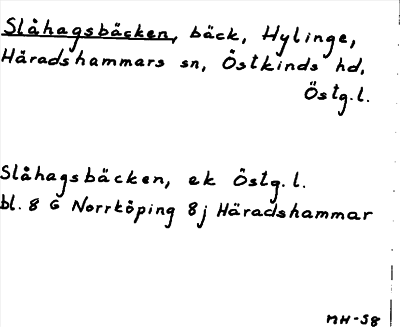 Slåhagsbäcken, bäck, Hylinge,
Häradshammars sn, Östkinds hd,
Östg.l.
Slåhagsbäcken, ek Östg.l.
bl. 8 G Norrköping 8j Häradshammar
MH-58